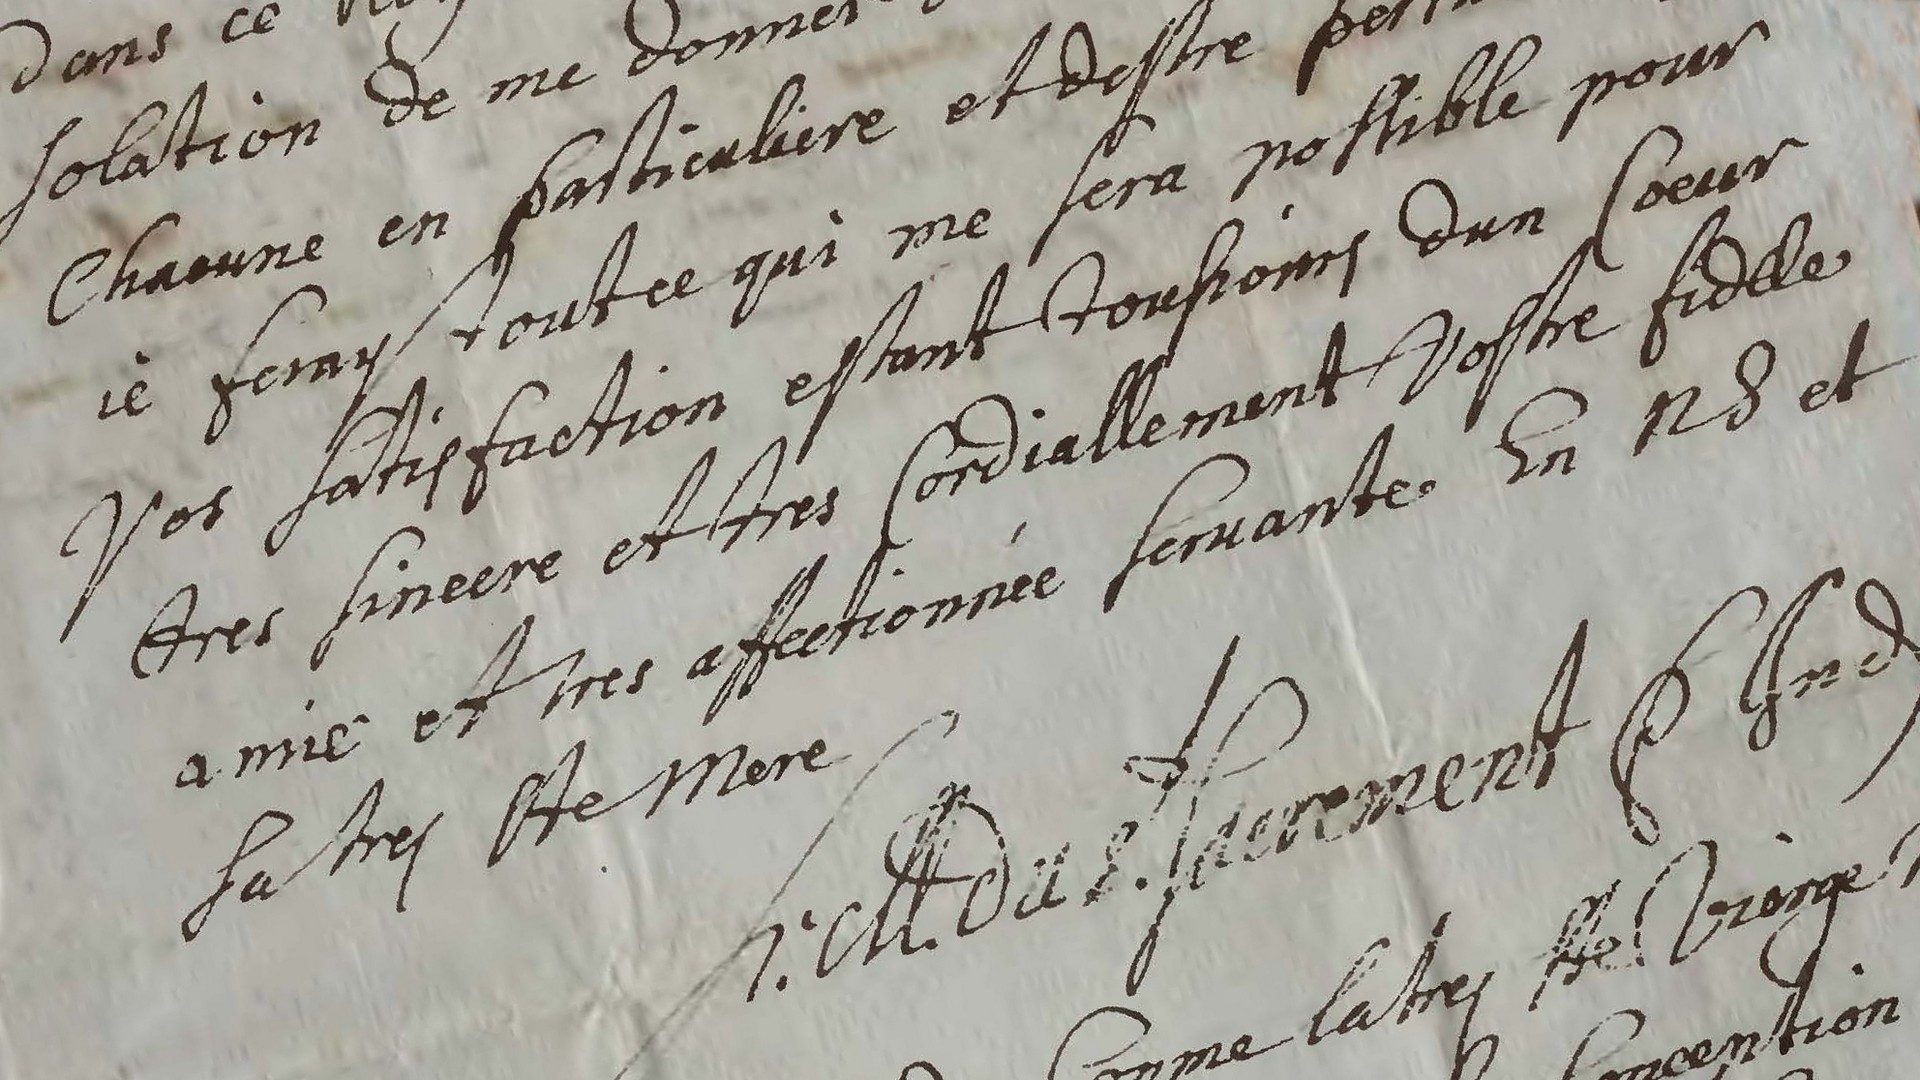 Dans ce
solation de me donner
Chacune en particuliere et destre
ie feray toutce qui me sera possible pour
Vos satisfaction estant tousiours dun Coeur
tres sincere et tres Cordiallement Vostre fidele
amie et tres affectionnée seruante En NS et
sa tres Ste Mere
M. Du S. Sacrement
Comme la tres Ste Vierge
Conception